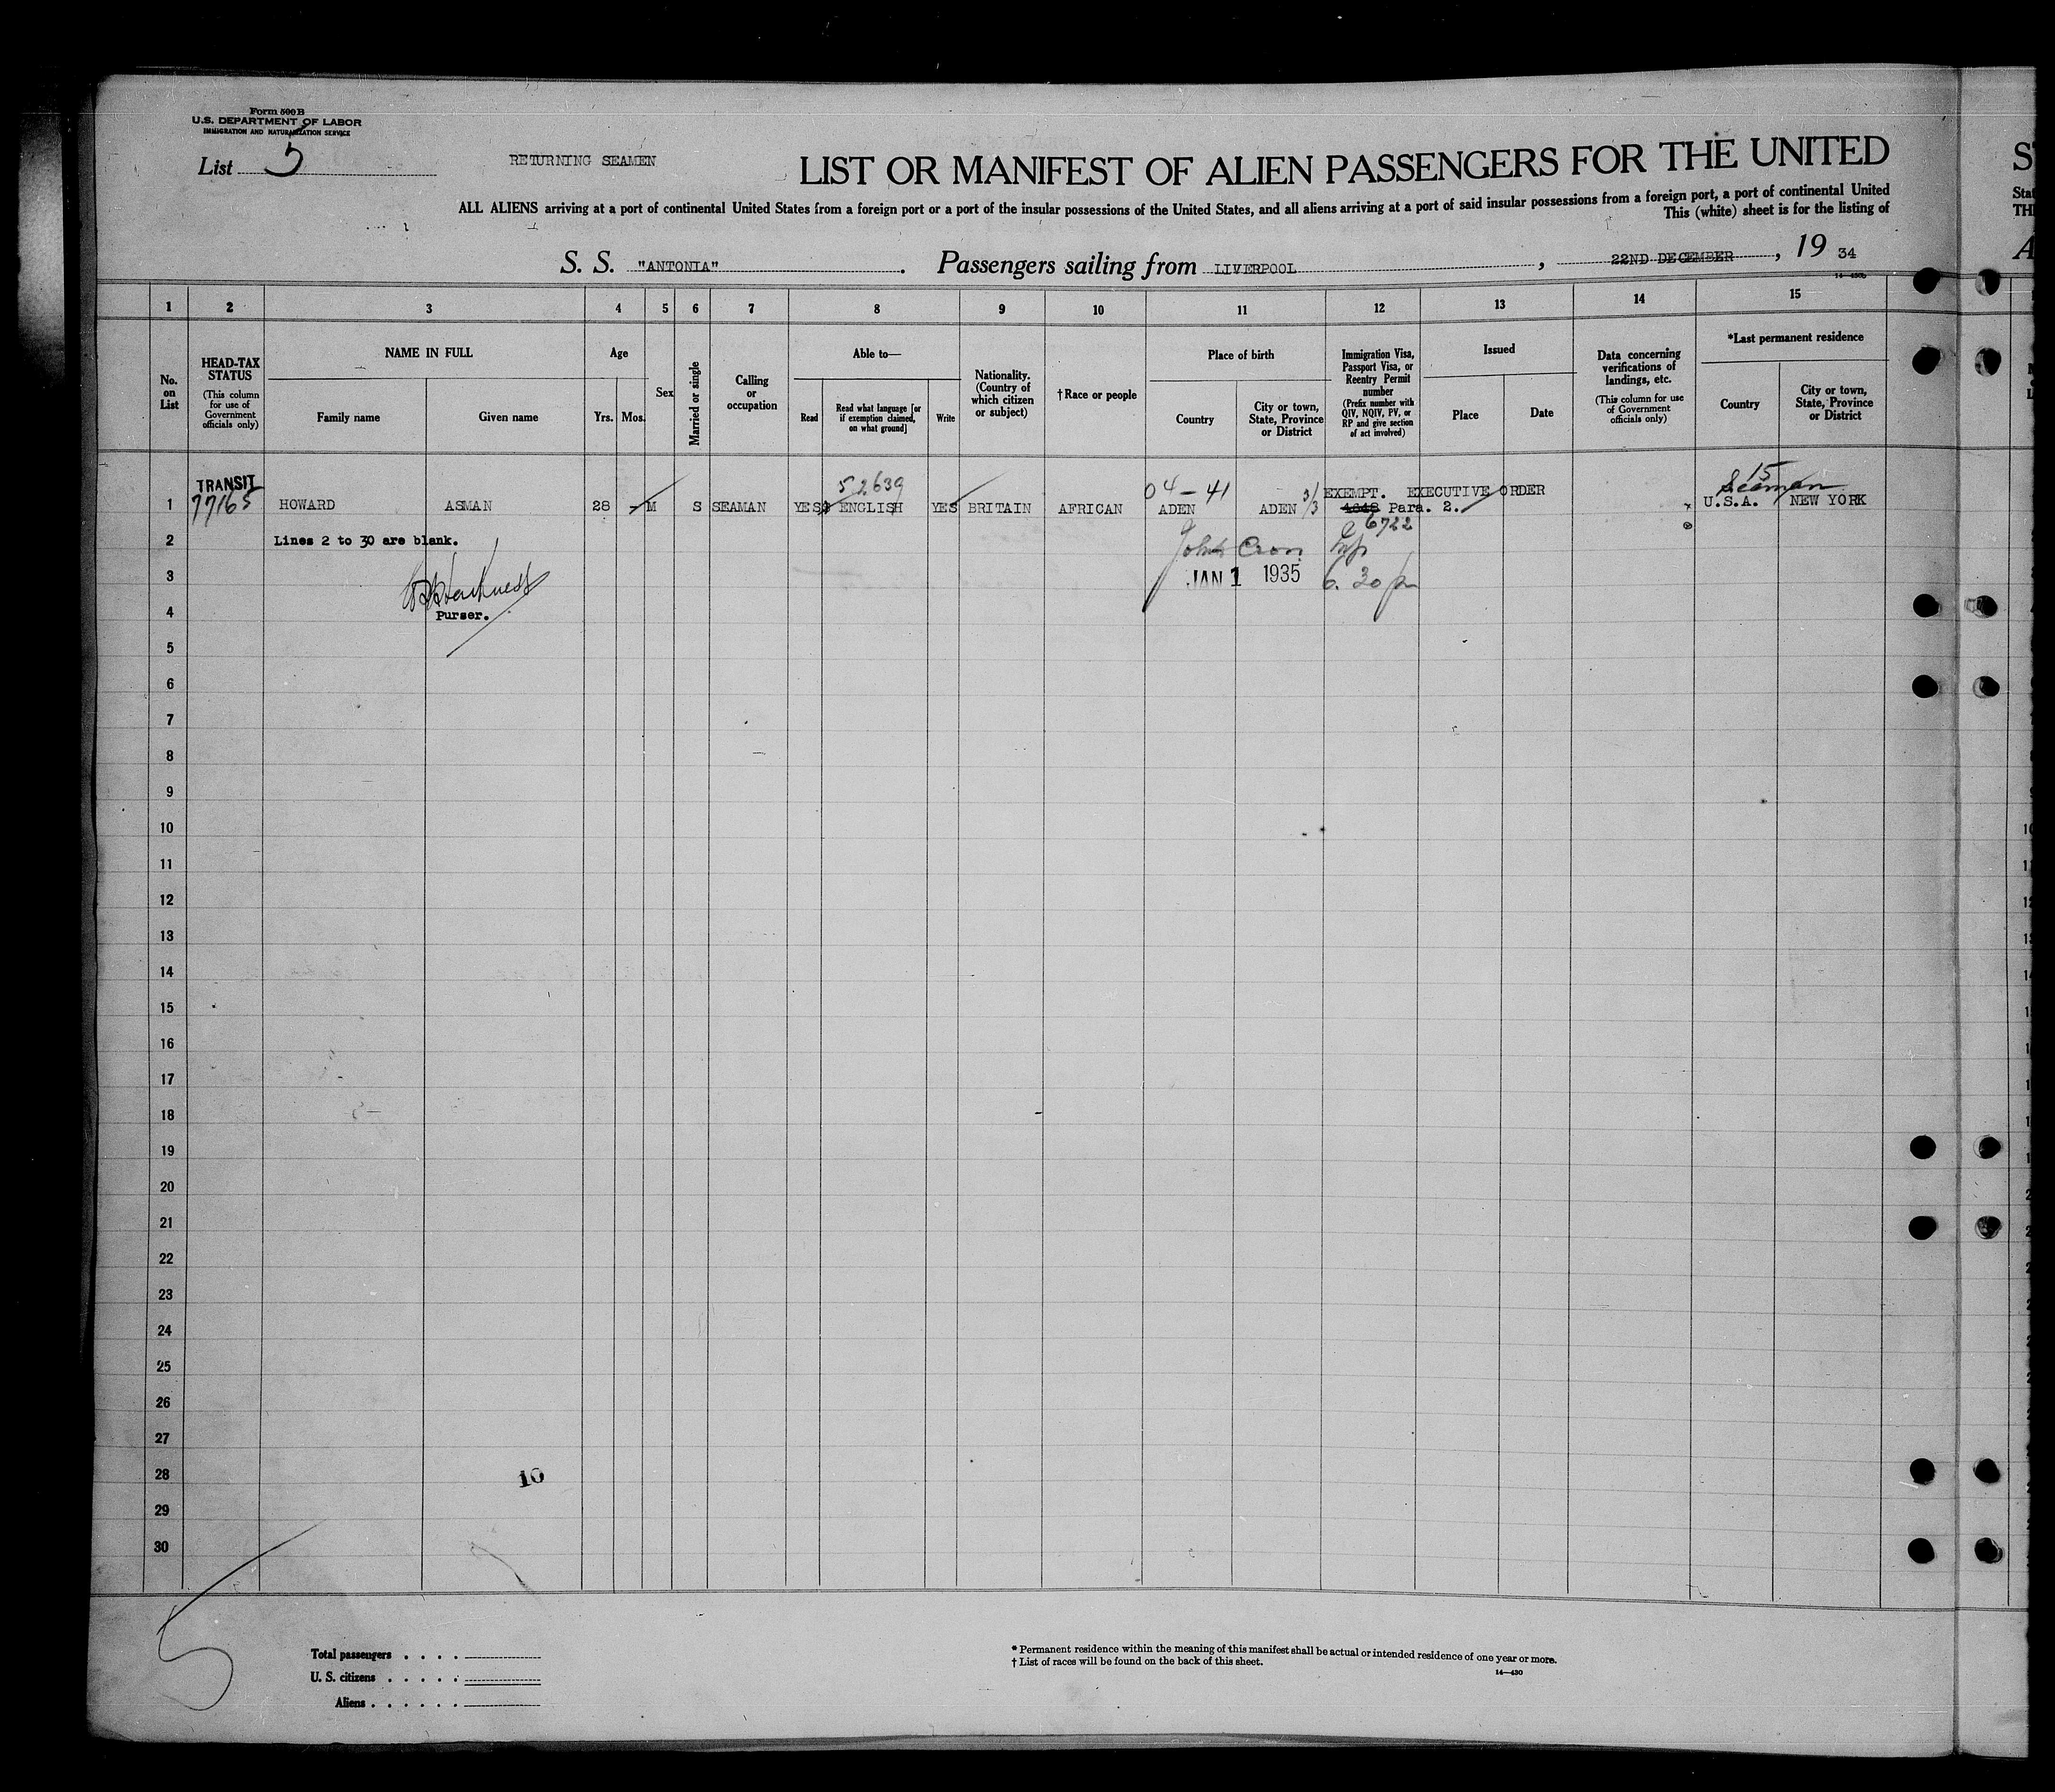 Form 500 B
U.S. DEPARTMENT OF LABOR
IMMIGRATION AND NATURALIZATION SERVICE
List 5
RETURNING SEAMEN
LIST OR MANIFEST OF ALIEN PASSENGERS FOR THE UNITED
ALL ALIENS arriving at a port of continental United States from a foreign port or a port of the insular possessions of the United States, and all aliens arriving at a port of said insular possessions from a foreign port, a port of continental United
This (white) sheet is for the listing of
S. S. "ANTONIA" . Passengers sailing from LIVERPOOL , 22ND DECEMBER , 19 34
1 2 3 4 5 6 7 8 9 10 11 12 13 14 15
No. on List
HEAD-TAX STATUS
(This column for use of Government officials only)
NAME IN FULL
Family name
Given name
Age
Yrs.
Mos.
Sex
Married or single
Calling or occupation
Able to—
Read
Read what language [or if exemption claimed, on what ground]
Write
Nationality. (Country of which citizen or subject)
†Race or people
Place of birth
Country
City or town, State, Province or District
Immigration Visa, Passport Visa, or Reentry Permit number
(Prefix number with QIV, NQIV, PV, or RP and give section of act involved)
Issued
Place
Date
Data concerning verifications of landings, etc.
(This column for use of Government officials only)
*Last permanent residence
Country
City or town, State, Province or District
TRANSIT 52639 04-41 3/3 EXEMPT. EXECUTIVE ORDER 15 Seaman
1 77165 HOWARD ASMAN 28 M S SEAMAN YES ENGLISH YES BRITAIN AFRICAN ADEN ADEN 4048 Para. 2. U.S.A. NEW YORK
6722
2 Lines 2 to 30 are blank. John Cron
3 JAN 1 1935 6.30 pm
4 Purser.
5
6
7
8
9
10
11
12
13
14
15
16
17
18
19
20
21
22
23
24
25
26
27
28 10
29
30
5
Total passengers
U. S. citizens
Aliens
* Permanent residence within the meaning of this manifest shall be actual or intended residence of one year or more.
† List of races will be found on the back of this sheet.
14—430